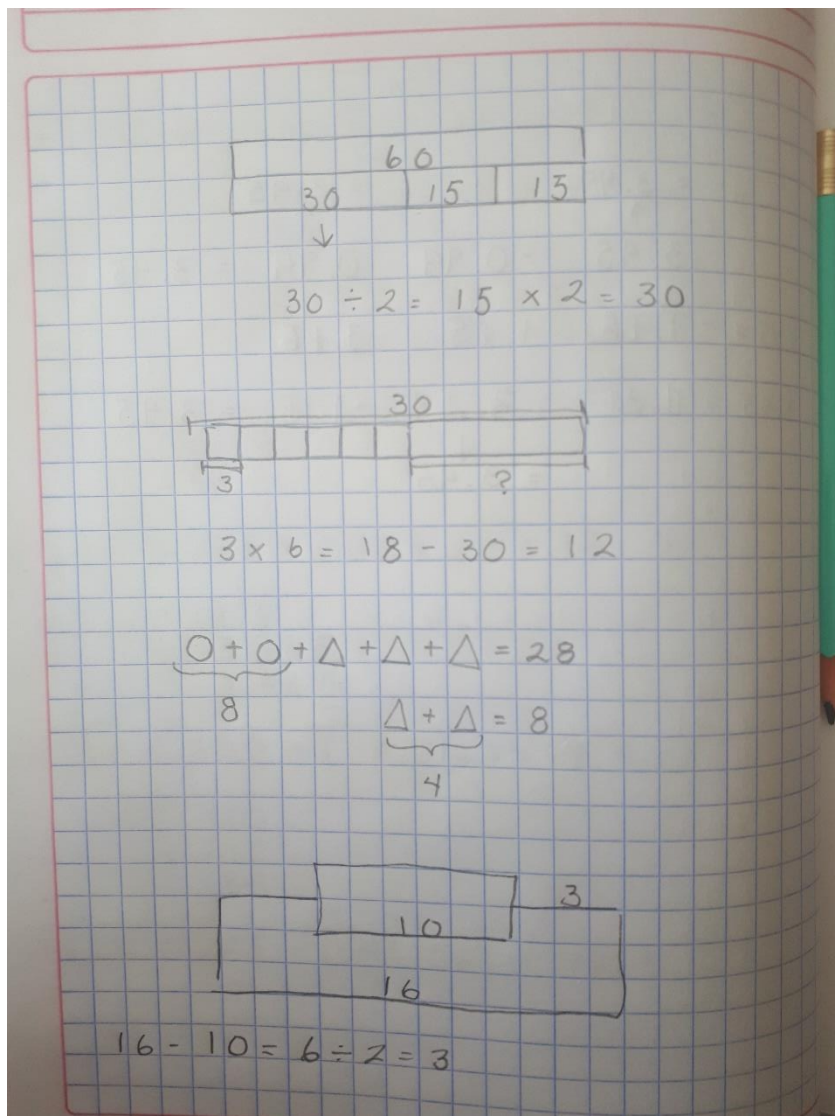 60
30 15 15
↓
30 ÷ 2 = 15 × 2 = 30
30
3 ?
3 × 6 = 18 - 30 = 12
O + O + △ + △ + △ = 28
8
△ + △ = 8
4
3
10
16
16 - 10 = 6 ÷ 2 = 3